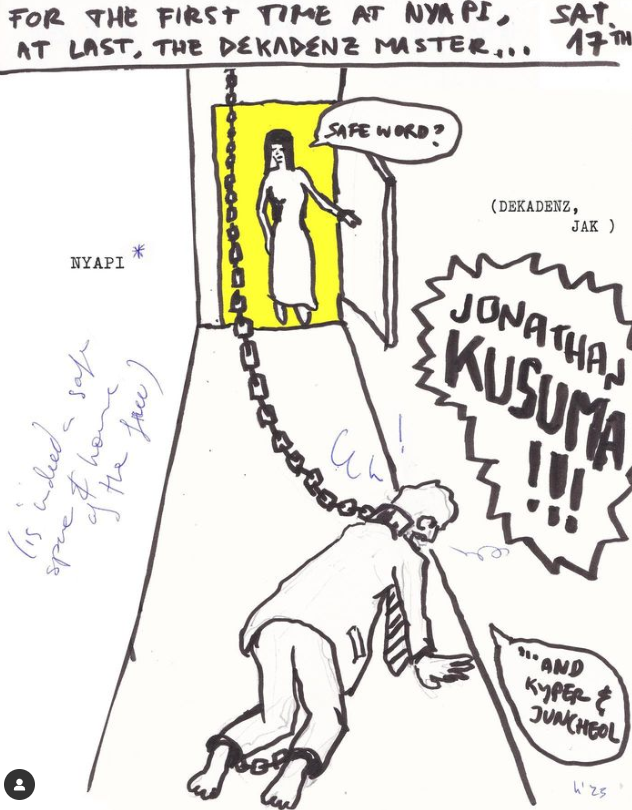 FOR THE FIRST TIME AT NYAPI, SAT.
AT LAST, THE DEKADENZ MASTER... 17TH
SAFE WORD?
(DEKADENZ,
JAK )
NYAPI *
JONATHAN
KUSUMA
!!!
(is indeed a safe
space & home
of the free)
!
"...AND
KYPER &
JUNCHEOL